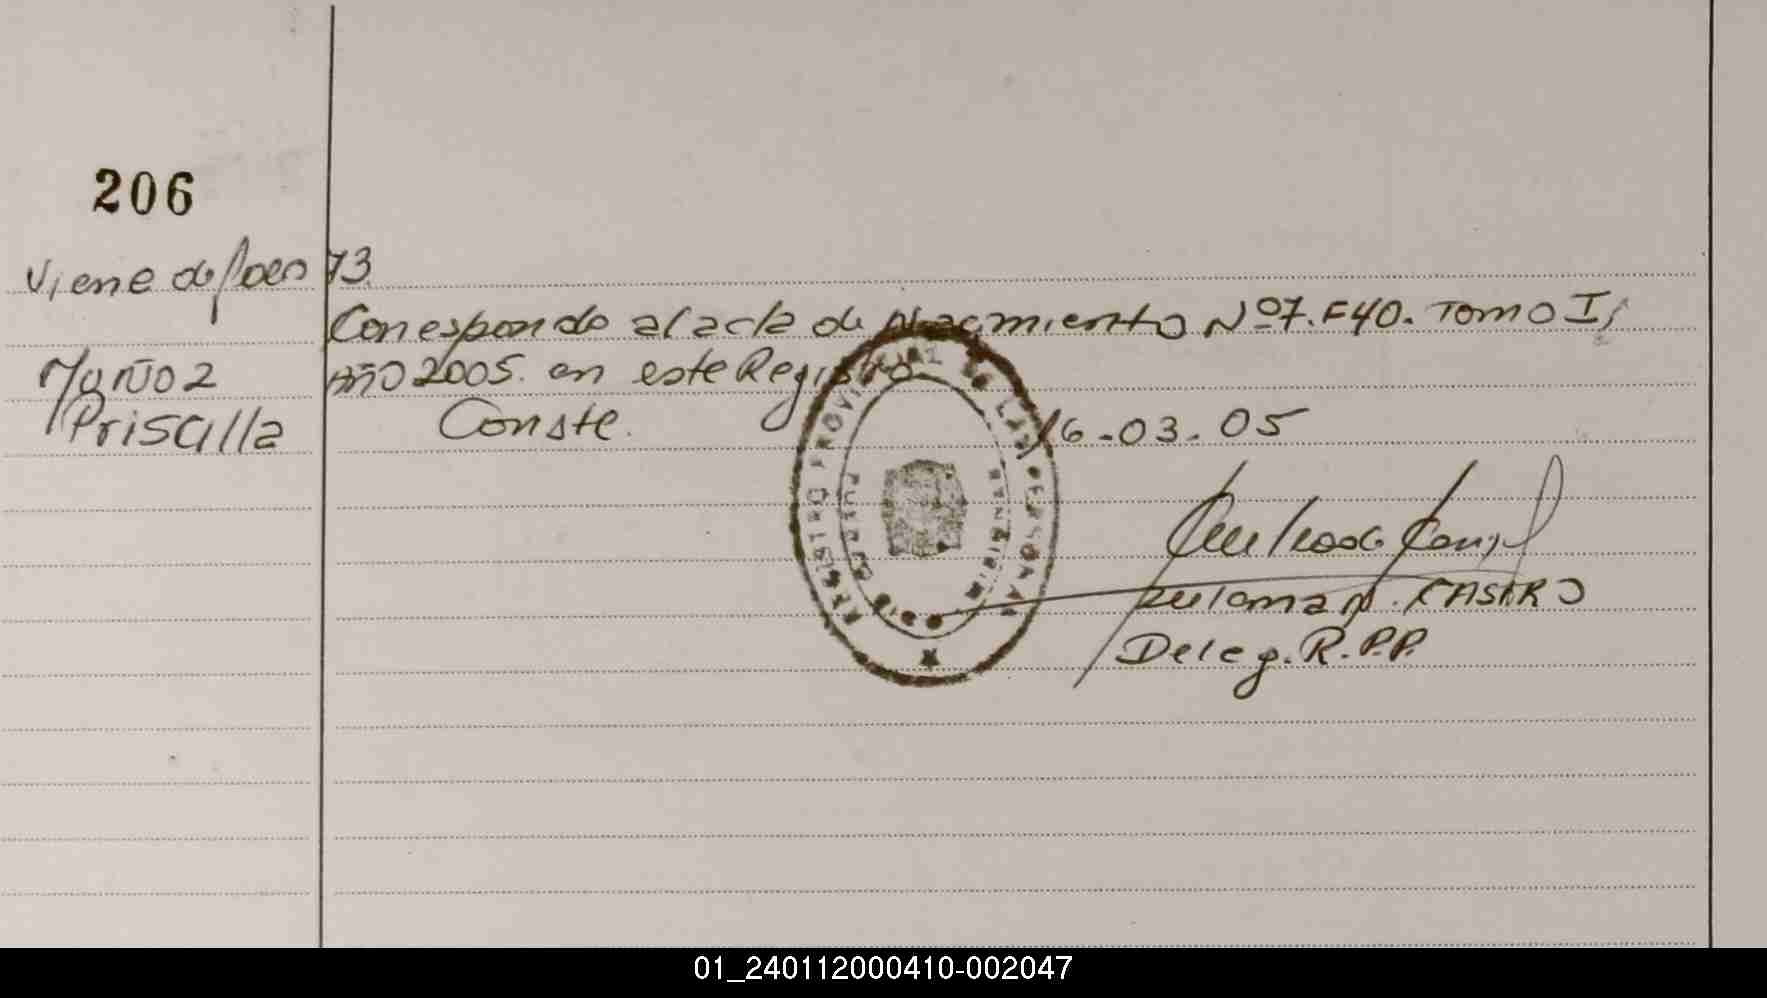 206
Viene de folio 73.
Corresponde al acta de Nacimiento Nº 7. F40. Tomo I,
Muñoz
año 2005. en este Registro.
Priscilla
Conste.
16-03.05
REGISTRO PROVINCIAL DE LAS PERSONAS
PUERTO
CASTRO
Deleg. R.P.P.
01_240112000410-002047